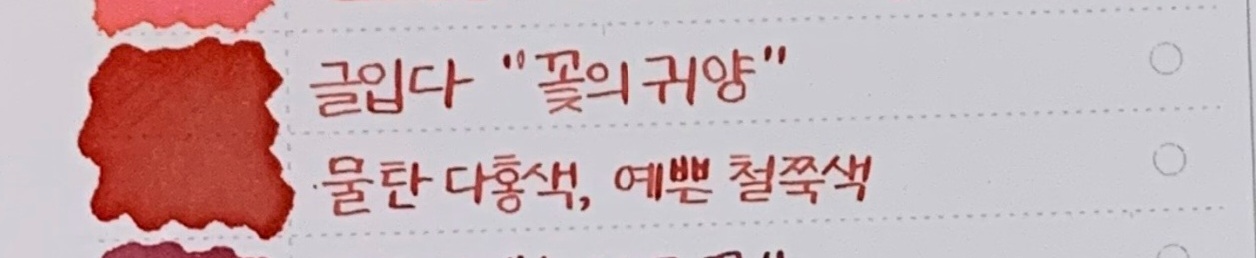 글입다 "꽃의 귀양"
물탄 다홍색, 예쁜 철쭉색